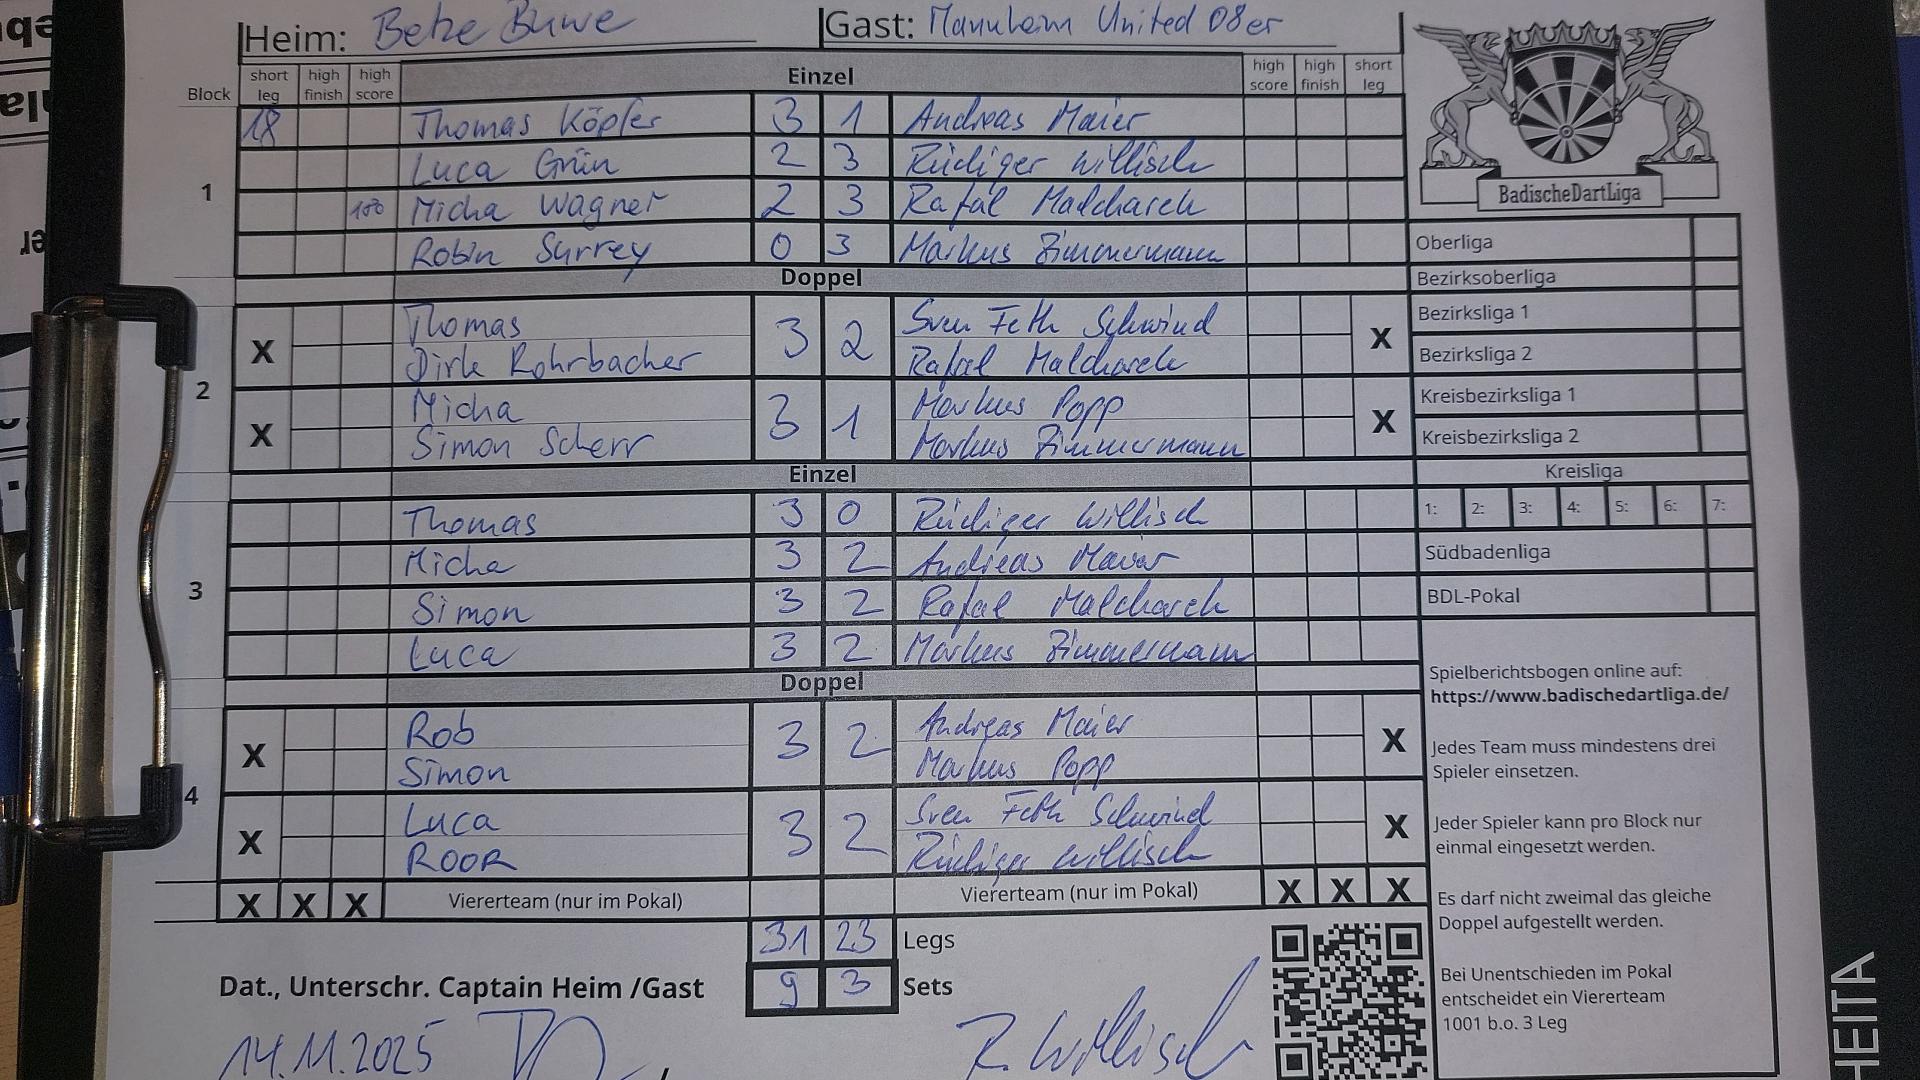 Heim: Betze Buwe Gast: Mannheim United 08er
Block short leg high finish high score Einzel high score high finish short leg
1
18 Thomas Köpfer 3 1 Andreas Maier
Luca Grün 2 3 Rüdiger Willisch
180 Micha Wagner 2 3 Rafal Malcharek
Robin Surrey 0 3 Markus Zimmermann
Doppel
2
X Thomas 3 2 Sven Feth Schwind X
Dirk Rohrbacher Rafal Malcharek
X Micha 3 1 Markus Popp X
Simon Scherr Markus Zimmermann
Einzel
3
Thomas 3 0 Rüdiger Willisch
Micha 3 2 Andreas Maier
Simon 3 2 Rafal Malcharek
Luca 3 2 Markus Zimmermann
Doppel
4
X Rob 3 2 Andreas Maier X
Simon Markus Popp
X Luca 3 2 Sven Feth Schwind X
ROOR Rüdiger Willisch
X X X Viererteam (nur im Pokal) Viererteam (nur im Pokal) X X X
31 23 Legs
9 3 Sets
Dat., Unterschr. Captain Heim /Gast
14.11.2025
R. Willisch
BadischeDartLiga
Oberliga
Bezirksoberliga
Bezirksliga 1
Bezirksliga 2
Kreisbezirksliga 1
Kreisbezirksliga 2
Kreisliga
1: 2: 3: 4: 5: 6: 7:
Südbadenliga
BDL-Pokal
Spielberichtsbogen online auf:
https://www.badischedartliga.de/
Jedes Team muss mindestens drei
Spieler einsetzen.
Jeder Spieler kann pro Block nur
einmal eingesetzt werden.
Es darf nicht zweimal das gleiche
Doppel aufgestellt werden.
Bei Unentschieden im Pokal
entscheidet ein Viererteam
1001 b.o. 3 Leg